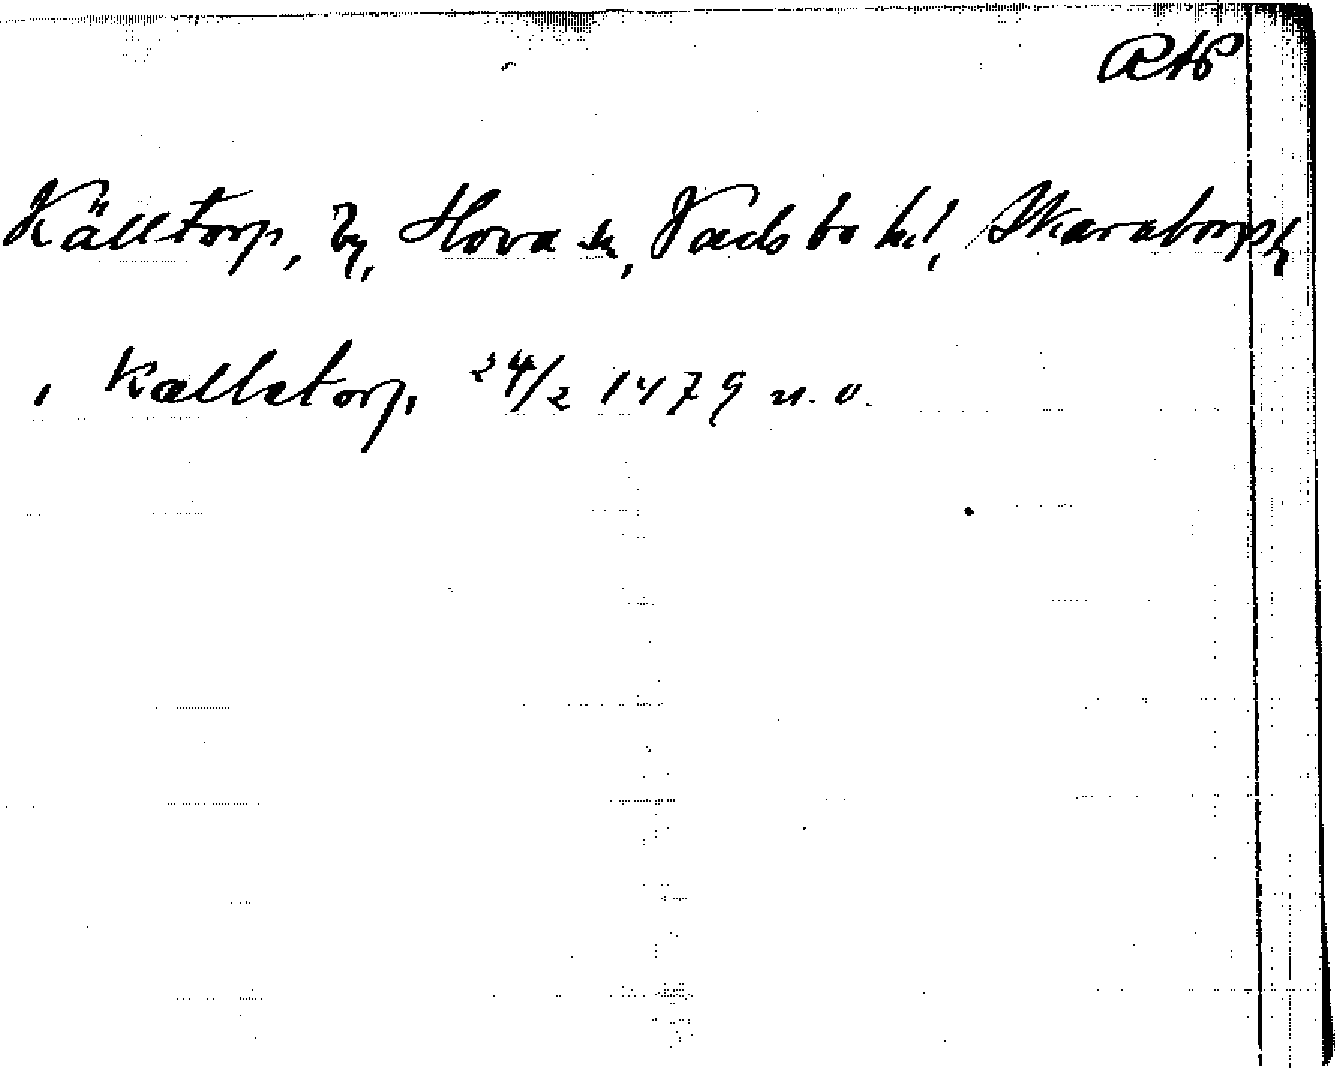 RAP
Källtorp, by, Hova sn, Vadsbo hd, Skaraborgs l.
i Kælletorp, 24/2 1479 n. o.